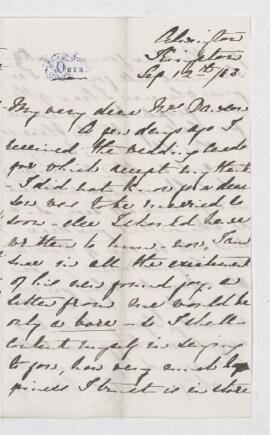 Dora.
Kington
Sep 12th/63
My very dear Mrs
A few days ago I
received the wedding cards
for which accept my thanks
- I did not know your dear
son was to be married so
soon - else I should have
written to him - now, I am
sure in all the excitement
of his new found joy, a
letter from me would be
only a bore - so I shall
content myself in saying
to you, how very much hap
piness I trust is in store